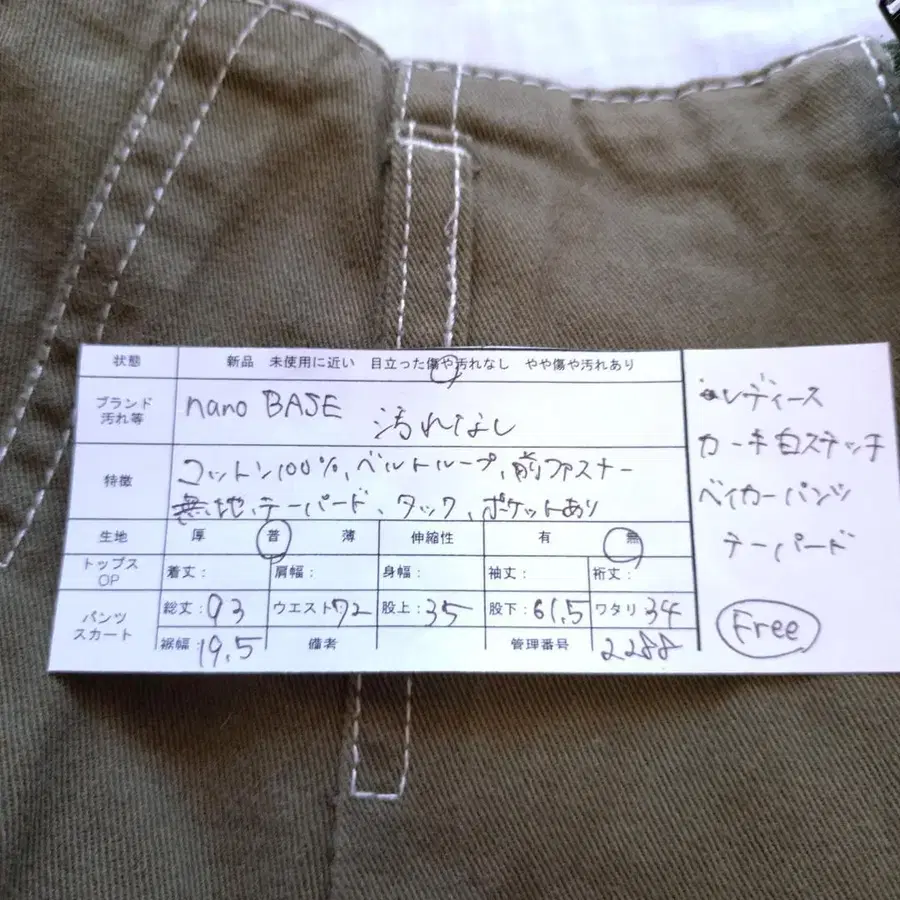 状態 新品 未使用に近い 目立った傷や汚れなし やや傷や汚れあり
ブランド
汚れ等
nano BASE
汚れなし
特徴
コットン100%、ベルトループ、前ファスナー
無地、テーパード、タック、ポケットあり
生地 厚 普 薄 伸縮性 有 無
トップス
OP
着丈: 肩幅: 身幅: 袖丈: 裄丈:
パンツ
スカート
総丈:93 ウエスト:72 股上:35 股下:61.5 ワタリ:34
裾幅:19.5 備考 管理番号 2288
レディース
カーキ白ステッチ
ベイカーパンツ
テーパード
Free